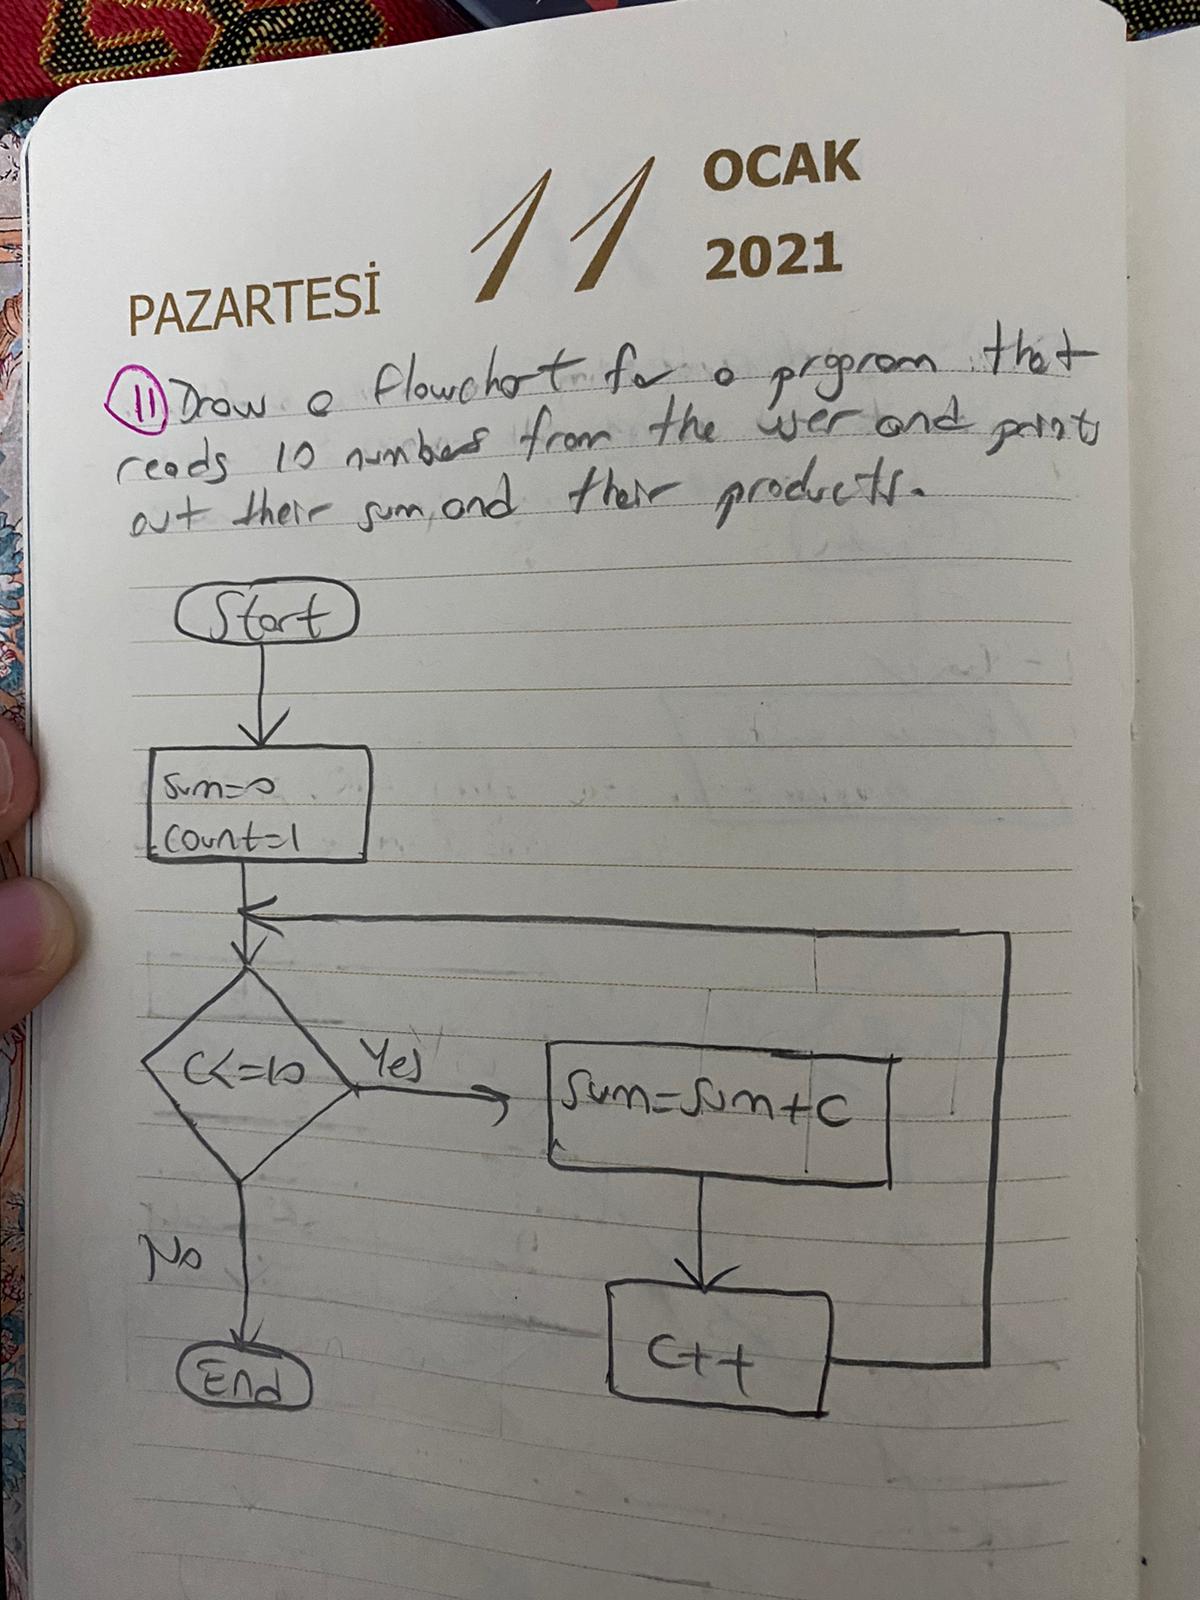 PAZARTESİ 11 OCAK 2021
11 Draw a flowchart for a prgoram that
reads 10 numbers from the user and prints
out their sum, and their products.
Start
sum=0
count=1
C<=10
Yes
sum=sum+C
No
C++
End